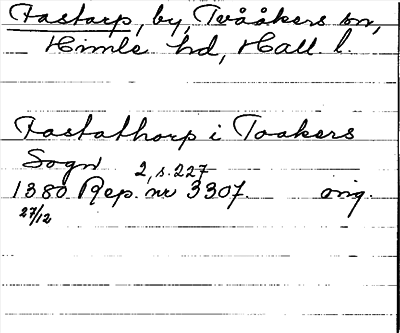 Fastarp, by, Tvååkers sn,
Himle hd, Hall l.
Fastathorp i Toakers
Sogn 2, s. 227
1380 Rep. nr 3307. orig.
27/12